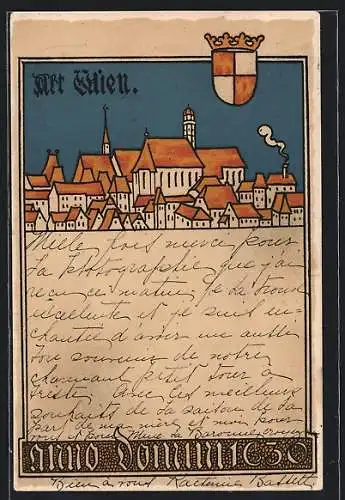 Alt Wien.
Mille fois merci pour
la photographie que j'ai
reçu ce matin. Je la trouve
excellente et je suis en-
chantée d'avoir un aussi
bon souvenir de notre
charmant petit tour à
Avec les meilleurs
souhaits de la saison de la
part de ma mère et moi pour
vous et pour Mme la Baronne
ANNO DOMINI
Bien à vous